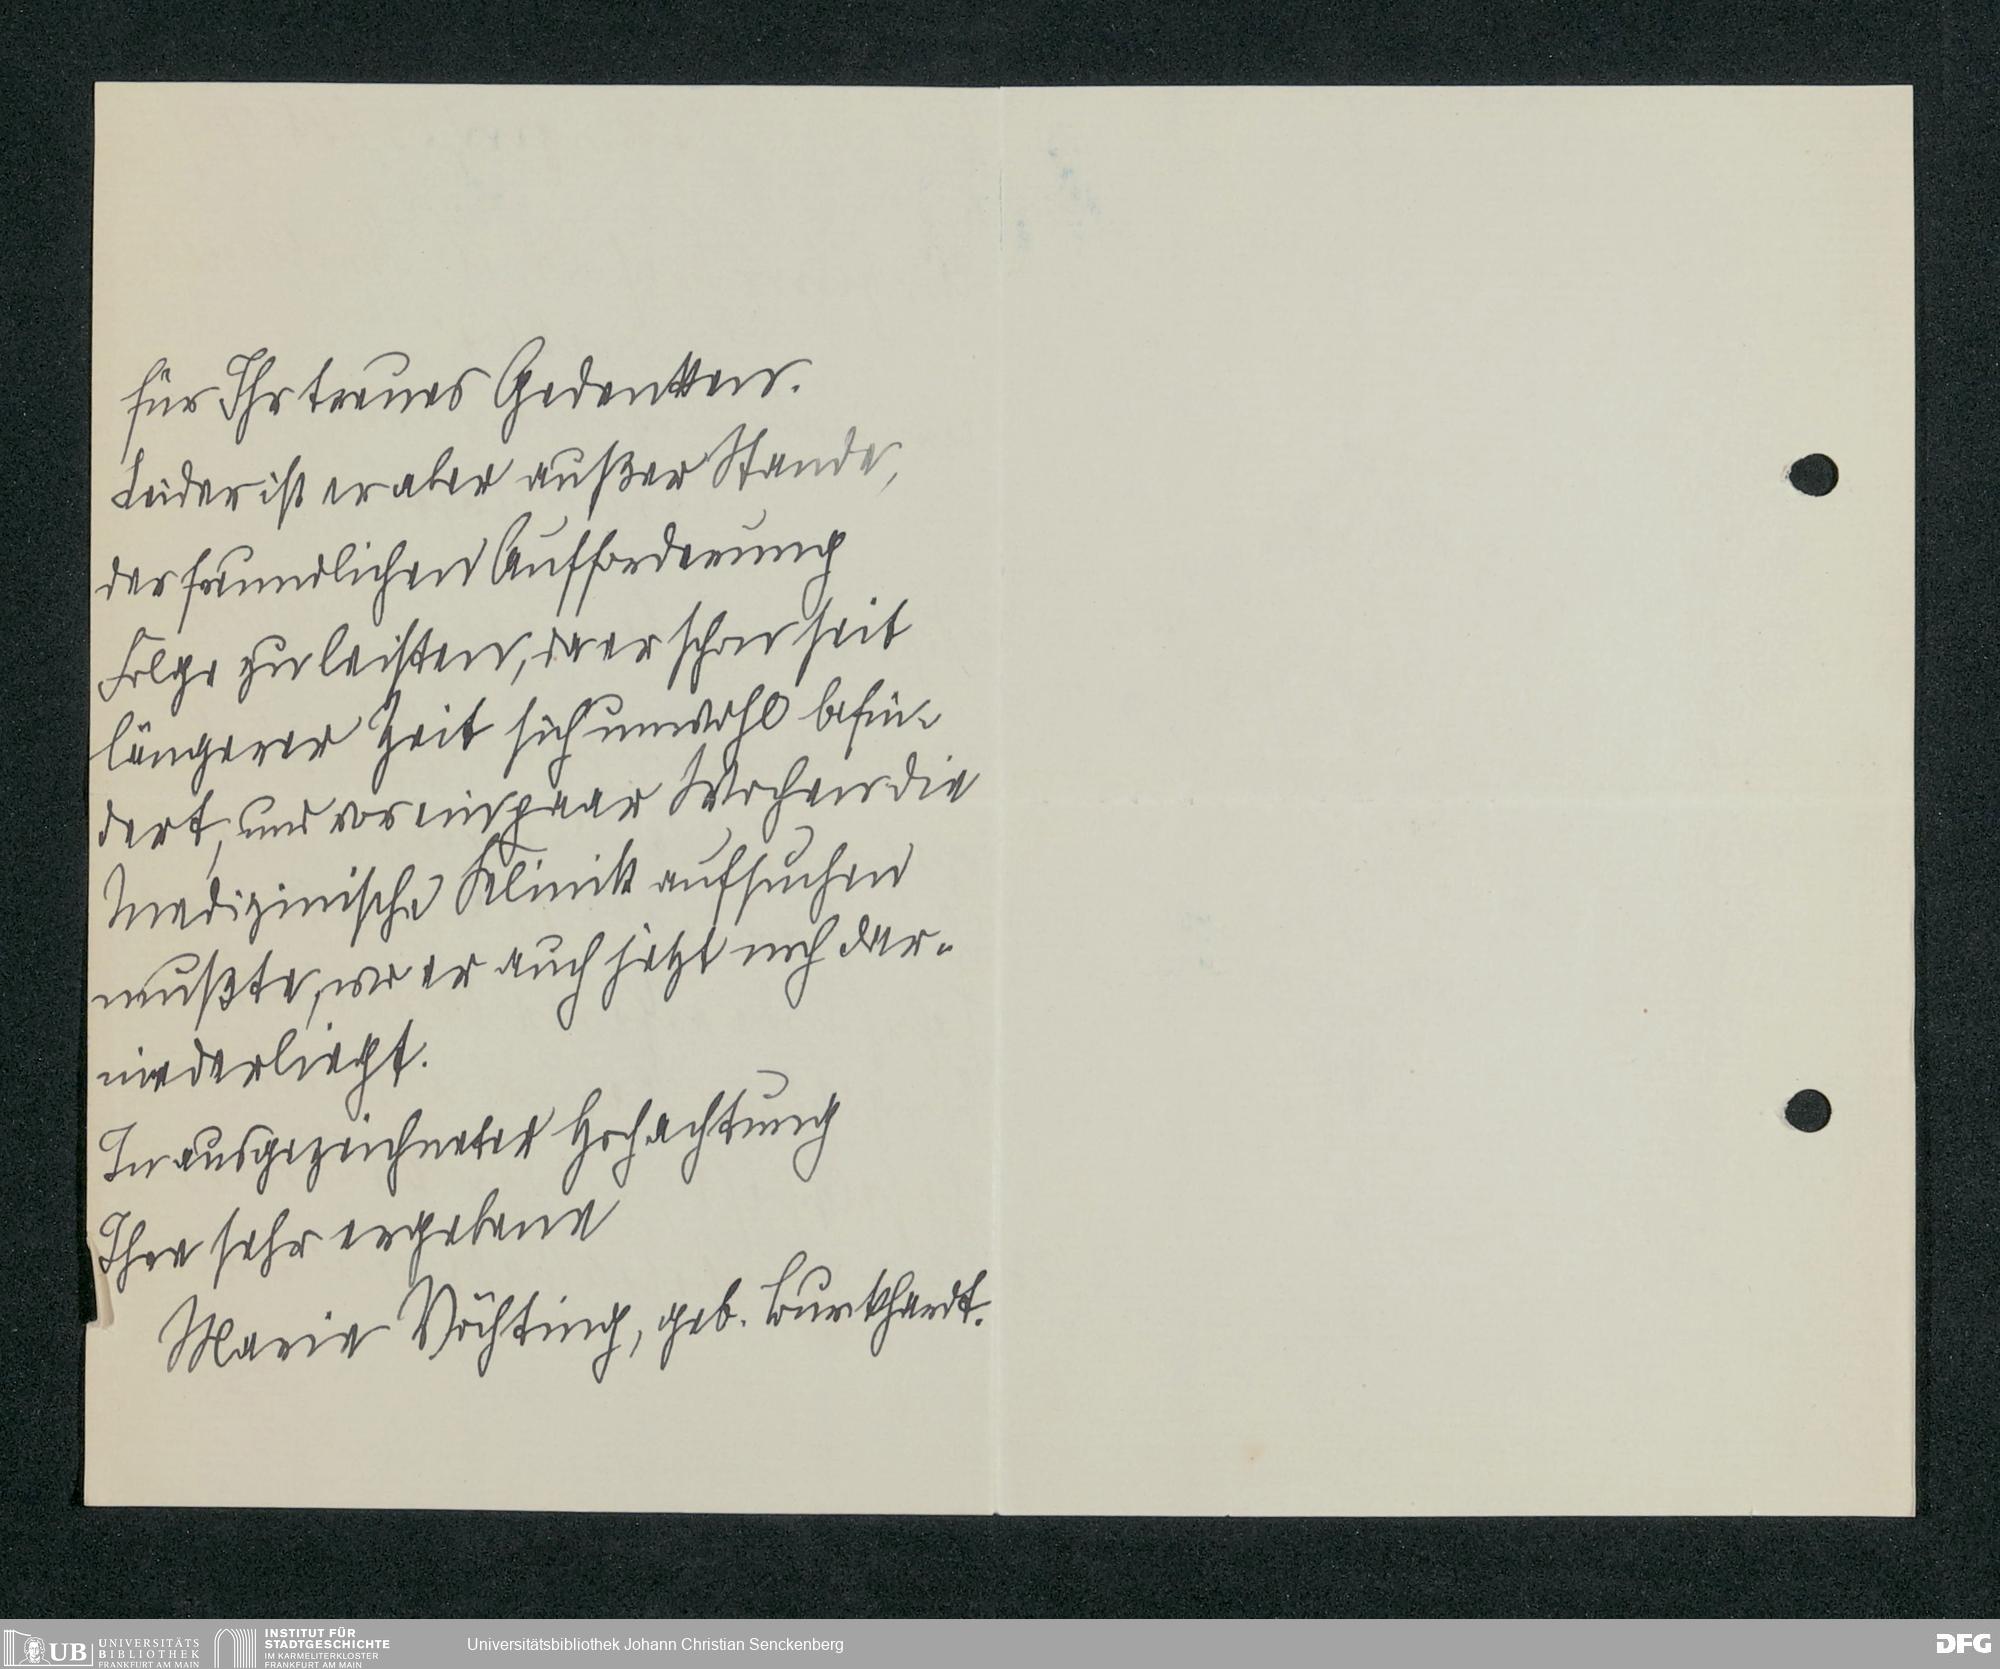 für Ihr treues Gedenken.
Leider ist er aber außer Stande,
der freundlichen Aufforderung
Folge zu leisten, da er schon seit
längerer Zeit sich unwohl befin-
det, und vor ein paar Wochen die
Medizinische Klinik aufsuchen
mußte, wo er auch jetzt noch dar-
niederliegt.
In ausgezeichneter Hochachtung
Ihre sehr ergebene
Marie Vöchting, geb. Burkhardt.
UB UNIVERSITÄTS
BIBLIOTHEK
FRANKFURT AM MAIN
INSTITUT FÜR
STADTGESCHICHTE
IM KARMELITERKLOSTER
FRANKFURT AM MAIN
Universitätsbibliothek Johann Christian Senckenberg
DFG